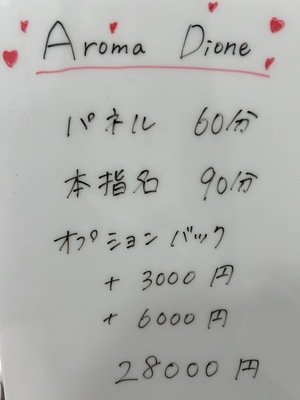 Aroma Dione
パネル 60分
本指名 90分
オプションバック
+ 3000円
+ 6000円
28000円